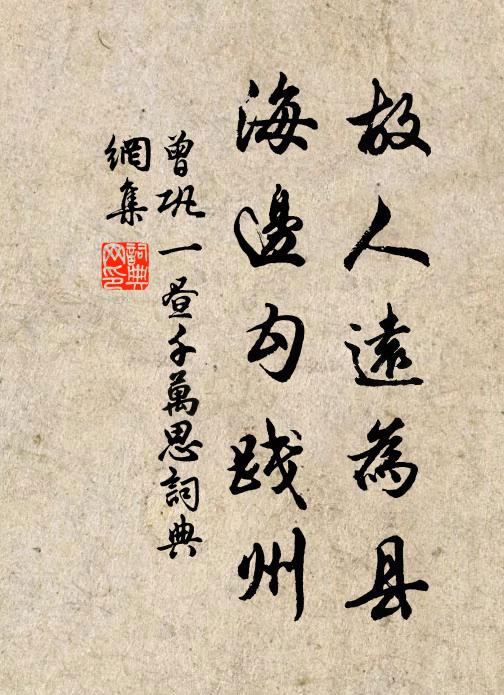 故人遠為县
海邊勾践州
曾巩一昼千萬思詞典
網集
詞典
网印